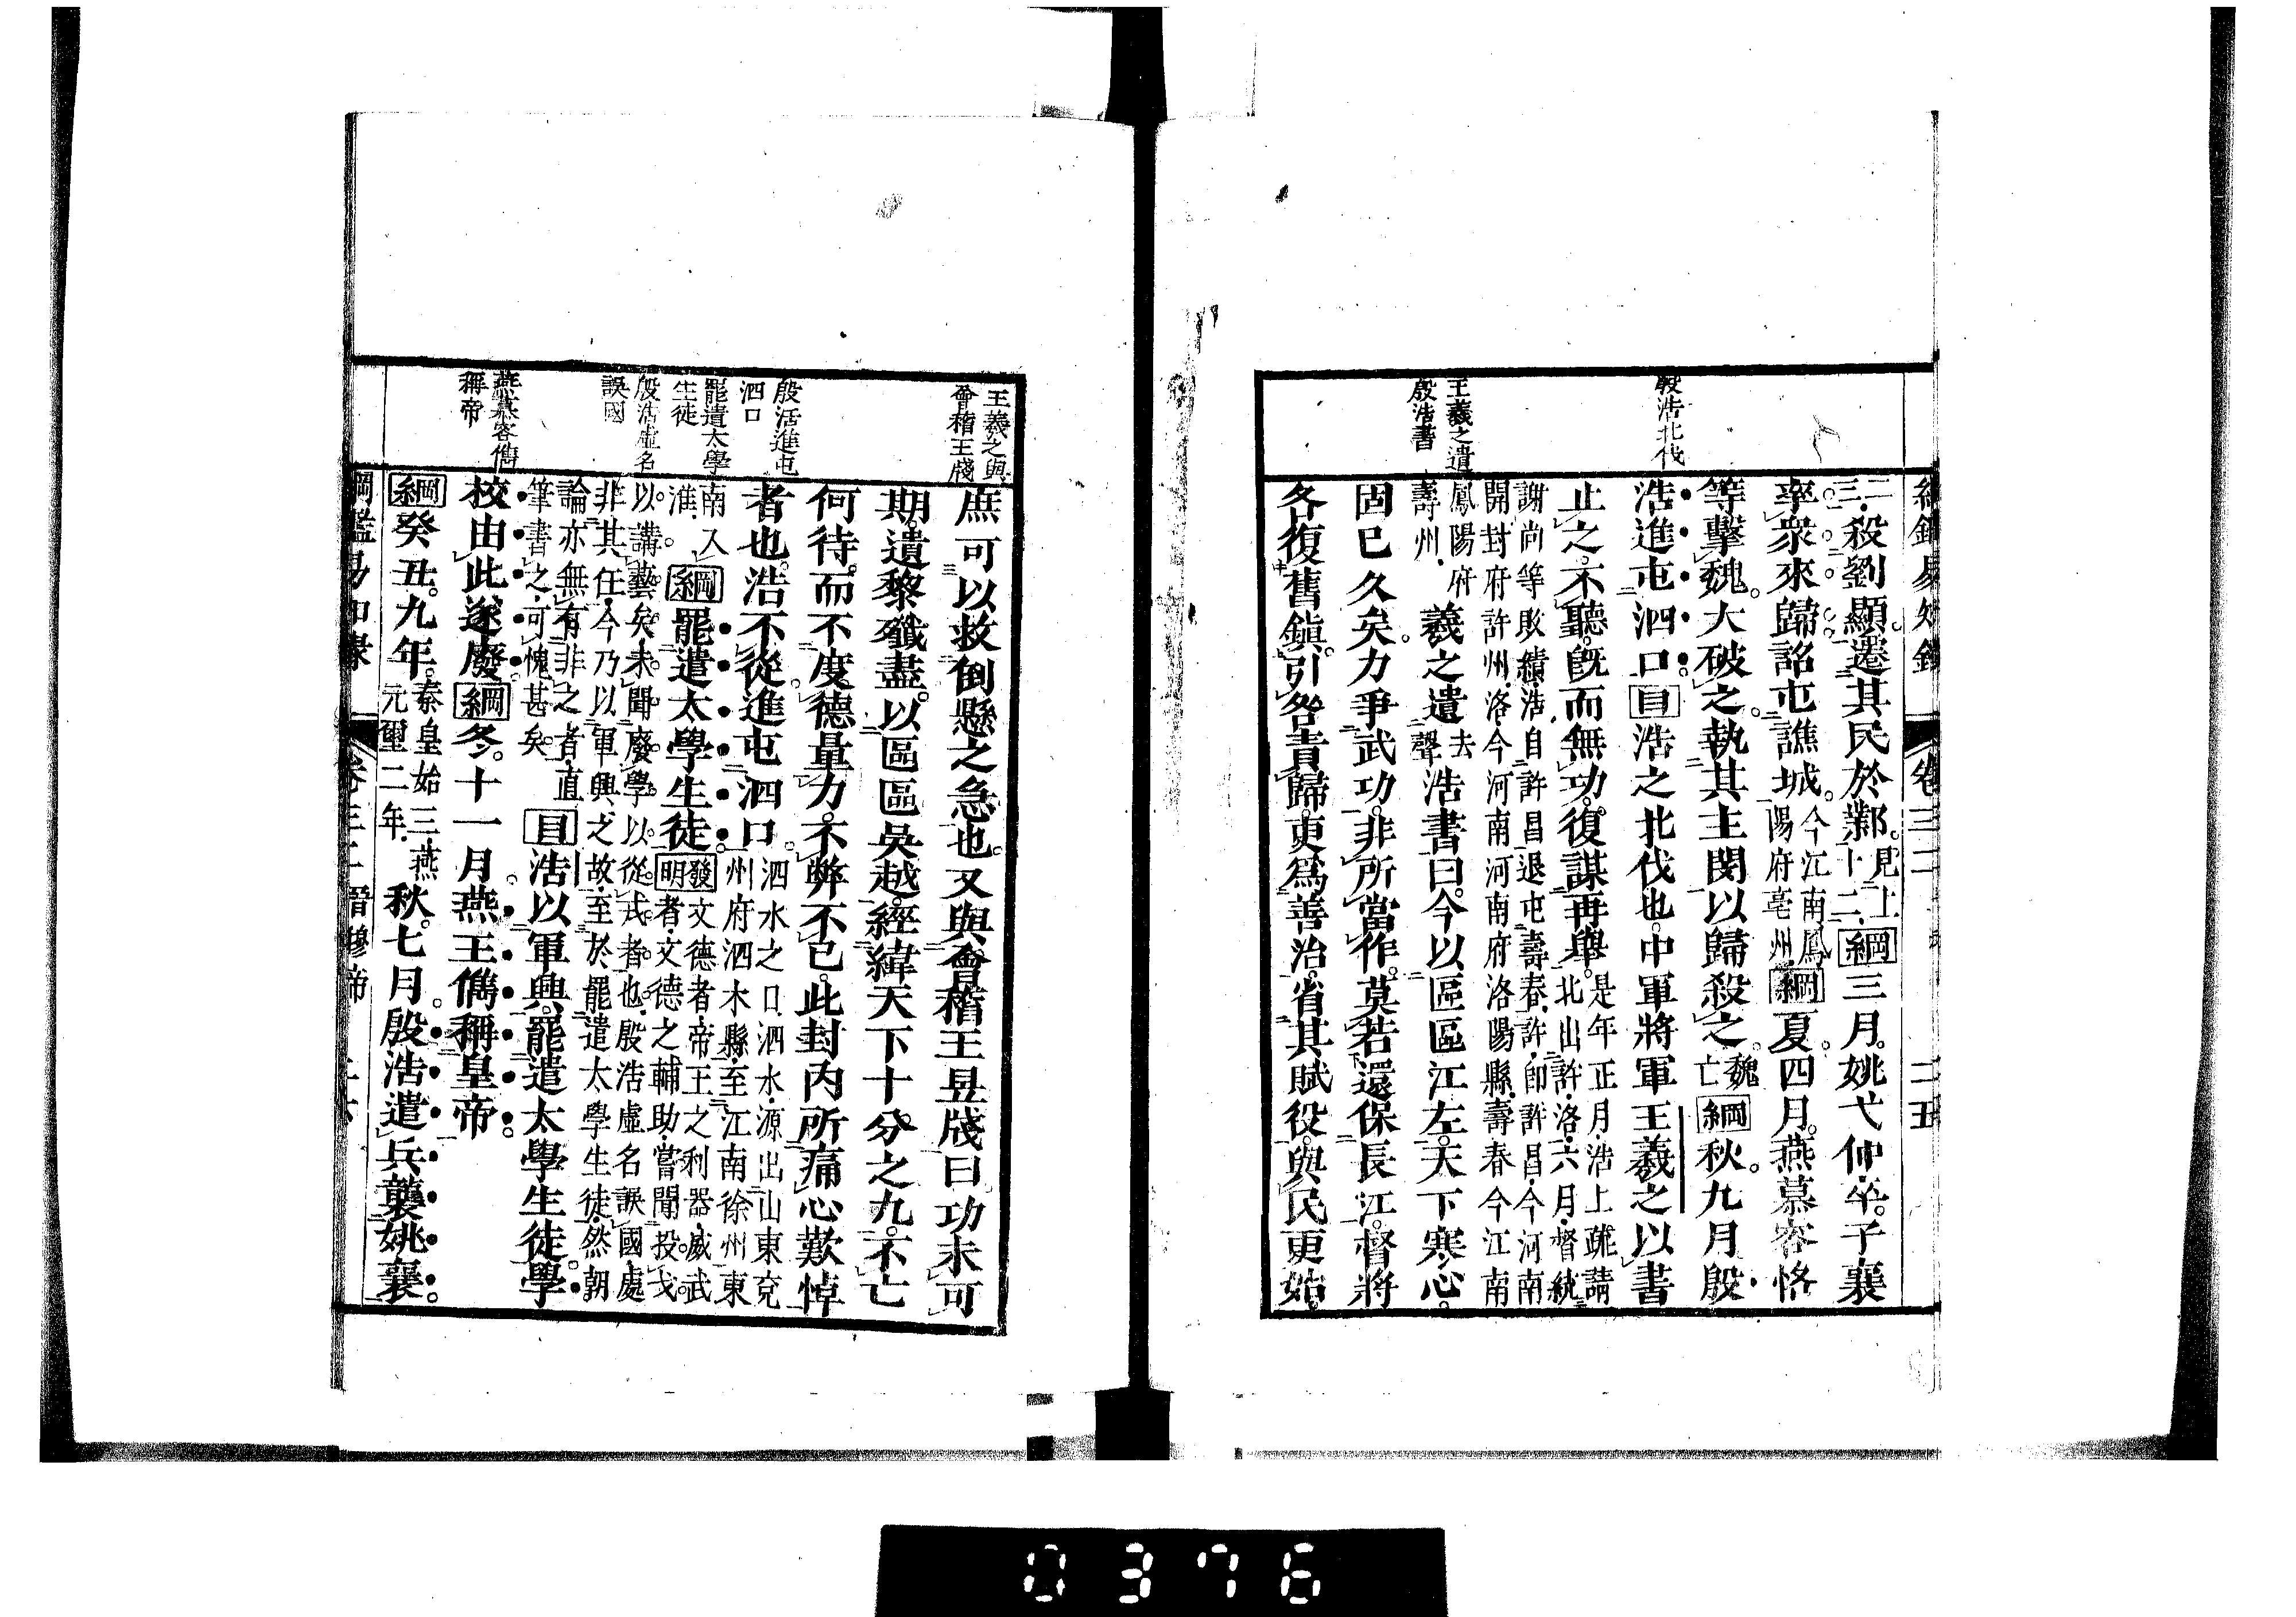 綱鑑易知錄　卷三二　二五
殷浩北伐
王羲之遺
殷浩書
三二殺劉顯遷其民於鄴見上十二綱三月姚弋仲卒子襄
率衆來歸詔屯譙城今江南鳳陽府亳州綱夏四月燕慕容恪
等擊魏大破之執其主閔以歸殺之魏亡綱秋九月殷
浩進屯泗口目浩之北伐也中軍將軍王羲之以書
止之不聽既而無功復謀再舉是年正月浩上疏請北出許洛六月督統
謝尚等敗績浩自許昌退屯壽春許即許昌今河南
開封府許州洛今河南河南府洛陽縣壽春今江南
鳳陽府壽州羲之遺去聲浩書曰今以區區江左天下寒心
固已久矣力爭武功非所當作莫若還保長江督將
各復舊鎮引咎責歸更爲善治省其賦役與民更始
王羲之與
會稽王牋
殷浩進屯
泗口
罷遣太學
生徒
殷浩虛名
誤國
燕慕容儁
稱帝
庶可以救倒懸之急也又與會稽王昱牋曰功未可
期遺黎殲盡以區區吳越經緯天下十分之九不亡
何待而不度德量力不弊不已此封内所痛心歎悼
者也浩不從進屯泗口泗水之口泗水源出山東兗州府泗水縣至江南徐州東
南入淮綱罷遣太學生徒發明文德者帝王之利器威武者文德之輔助嘗聞投戈
以講藝矣未聞廢學以從戎者也殷浩虛名誤國處
非其任今乃以軍興之故至於罷遣太學生徒然朝
論亦無有非之者直筆書之可愧甚矣目浩以軍興罷遣太學生徒學
校由此遂廢綱冬十一月燕王儁稱皇帝
綱癸丑九年秦皇始三燕元璽二年秋七月殷浩遣兵襲姚襄
綱鑑易知錄　卷三二晉穆帝　二六
0376